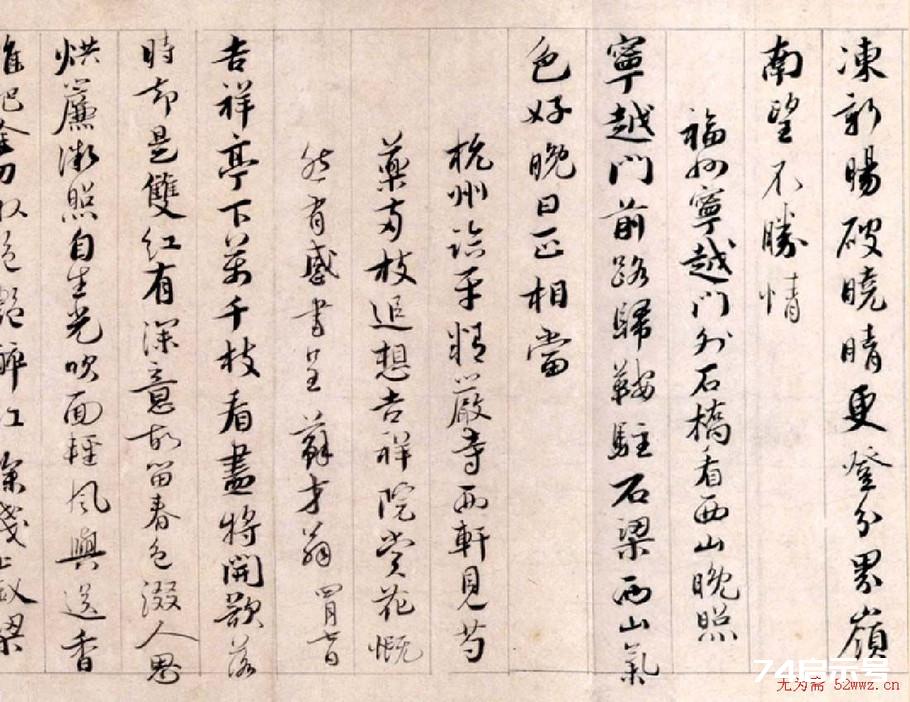 凍新暘破曉晴更登分界嶺
南望不勝情
福州寧越門外石橋看西山晚照
寧越門前路歸鞍駐石梁西山氣
色好晚日正相當
杭州臨平精嚴寺西軒見芍
藥兩枝追想吉祥院賞花慨
然有感書呈 蘇才翁 四月七日
吉祥亭下萬千枝看盡將開欲落
時却是雙紅有深意故留春色綴人思
烘簾微照自生光吹面輕風與送香
誰把金刀收絕艷醉紅深淺上釵梁
74启示号
无为斋 52wwz.cn